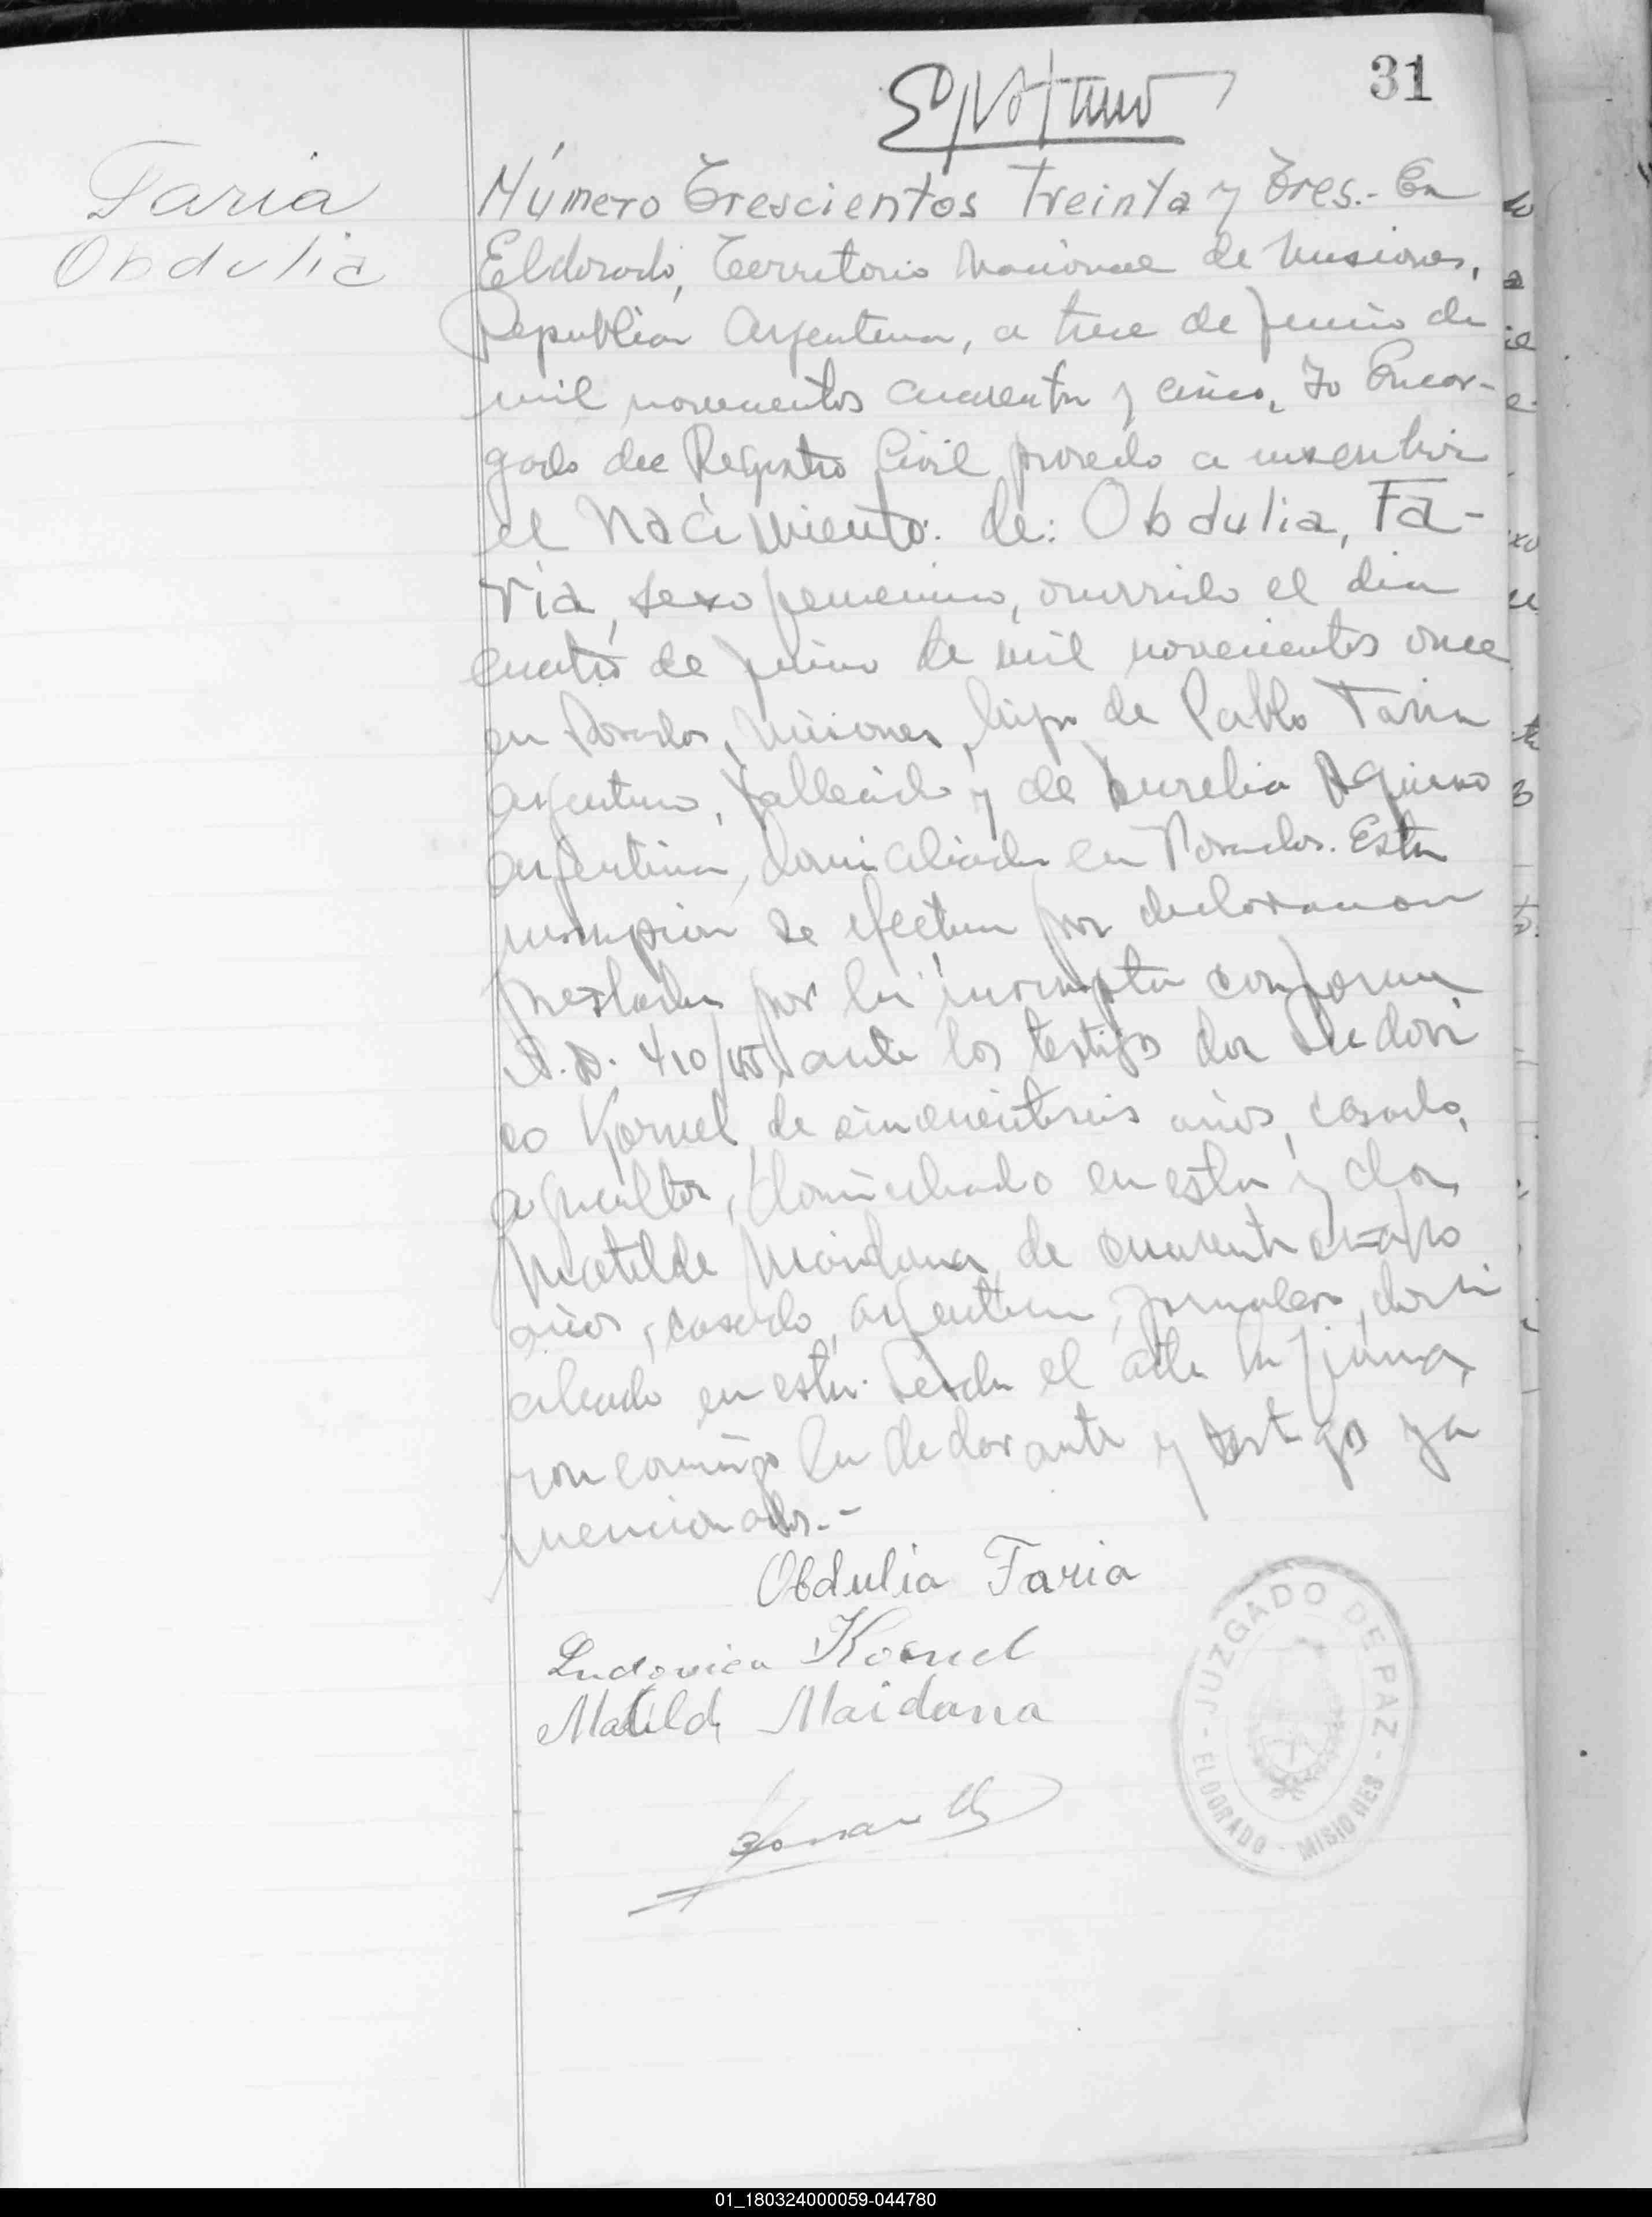 31
Faria
Obdulia
Número Trescientos Treinta y Tres.- En
Eldorado, Territorio Nacional de Misiones,
Republica Argentina, a trece de junio de
mil novecientos cuarenta y cinco, Yo Encar-
gado del Registro Civil procedo a inscribir
el Nacimiento: de: Obdulia, Fa-
ria, sexo femenino, ocurrido el dia
cuatro de junio de mil novecientos once
en Posadas, Misiones, hija de Pablo Faria
argentino, fallecido y de Aurelia Aguirre
argentina, domiciliada en Posadas. Esta
inscripcion se efectua por declaracion
prestada por la inscripta conforme
410/45 ante los testigos don Ludovi
co Kornel de cincuentiseis años, casado,
agricultor, domiciliado en esta y don
Matilde Maidana de cuarenta cuatro
años, casado, argentino, jornalero, domi
ciliado en esta. Leida el acta la firma
con conmigo la declarante y testigos ya
mencionados.-
Obdulia Faria
Ludovico Kornel
Matilde Maidana
JUZGADO DE PAZ
- ELDORADO - MISIONES -
01_180324000059-044780